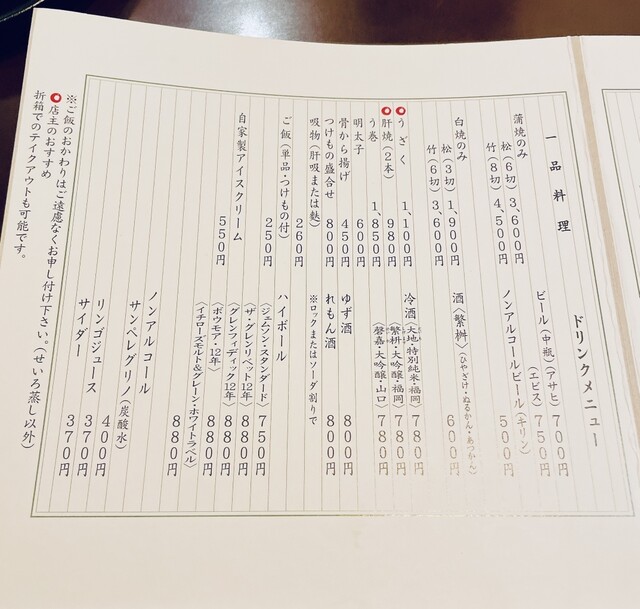 一品料理
蒲焼のみ
松(6切) 3,600円
竹(8切) 4,500円
白焼のみ
松(3切) 1,900円
竹(6切) 3,600円
うざく 1,100円
肝焼(2本) 980円
う巻 1,850円
明太子 600円
骨から揚げ 450円
つけもの盛合せ 800円
吸物(肝吸または麩) 260円
ご飯(単品・つけもの付) 250円
自家製アイスクリーム 550円
ドリンクメニュー
ビール(中瓶)(アサヒ) 700円
(エビス) 750円
ノンアルコールビール(キリン) 500円
酒〈繁桝〉(ひやざけ・ぬるかん・あつかん) 600円
冷酒〈大地・特別純米・福岡〉 780円
〈繁桝・大吟醸・福岡〉 780円
〈磬嘉・大吟醸・山口〉 780円
ゆず酒 800円
れもん酒 800円
※ロックまたはソーダ割りで
ハイボール
〈ジェムソン・スタンダード〉 750円
〈ザ・グレンリベット12年〉 880円
〈グレンフィディック12年〉 880円
〈ボウモア・12年〉 880円
〈イチローズモルト&グレーン・ホワイトラベル〉
880円
ノンアルコール
サンペレグリノ(炭酸水) 400円
リンゴジュース 370円
サイダー 370円
※ご飯のおかわりはご遠慮なくお申し付け下さい。(せいろ蒸し以外)
店主のおすすめ
折箱でのテイクアウトも可能です。